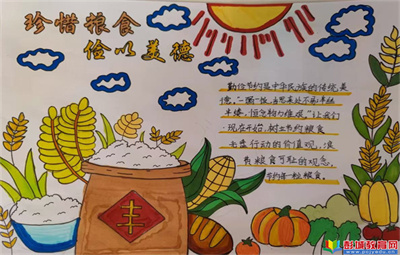 珍惜粮食
俭以美德
勤俭节约是中华民族的传统美
德，一粥一饭，当思来处不易，半丝
半缕，恒念物力维艰，"让我们
现在开始，树立节约粮食
光盘行动的价值观，浪
费粮食可耻的观念，
节约每一粒粮食。
丰
彭城教育网